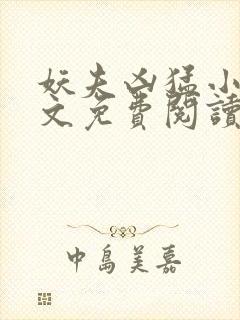 妖夫凶猛小
文免費閱讀
中島美嘉